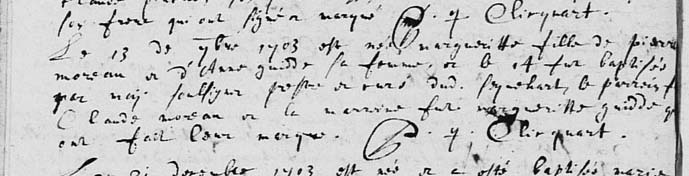 son frere qui ont signé et marqué P. q Clicquart.
Le 13 de 9bre 1703 est née margueritte fille de pierre
moreau et d'Anne guidde sa femme, et le 14 fut baptisée
par moy soubsigné pestre et curé dud. le parein f
Claude moreau et la marrine fut margueritte guidde q
ont fait leur marque. P. q. Clicquart.
decembre 1703 est née et a esté baptisée marie